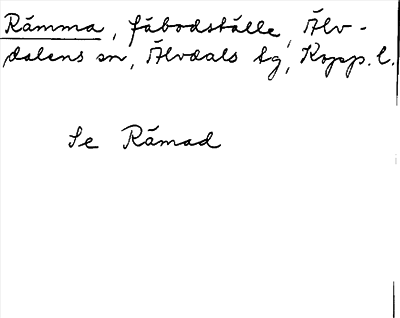 Råmma, fäbodställe, Älv-
dalens sn, Älvdals tg, Kopp. l.
Se Råmad